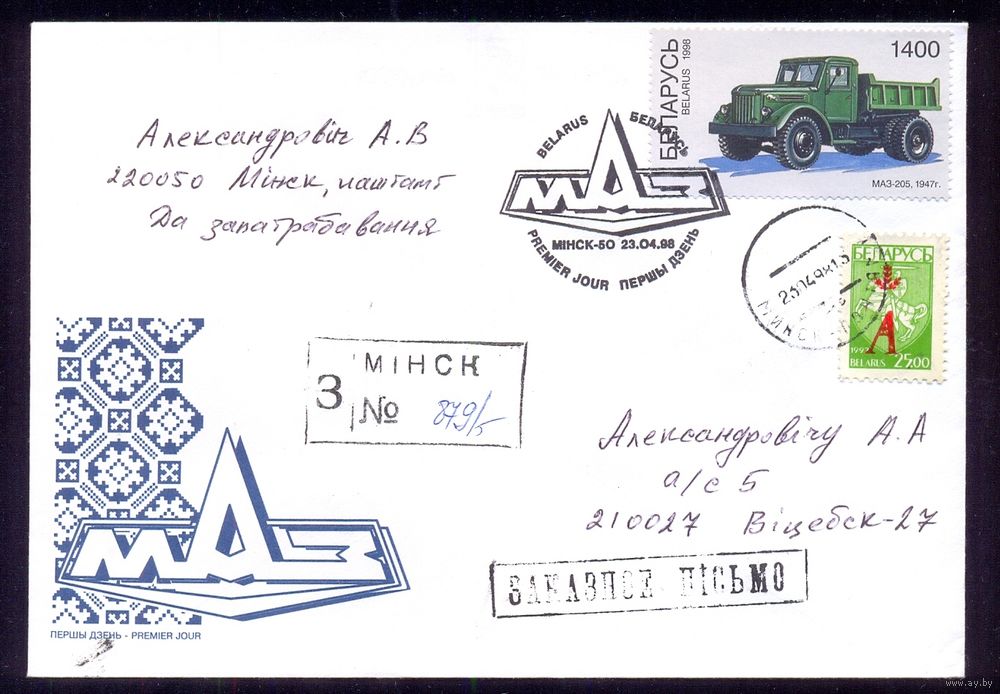 Александровіч А.В
220050 Мінск, паштамт
Да запатрабавання
BELARUS БЕЛАРУСЬ
МАЗ
МІНСК-50 23.04.98
PREMIER JOUR ПЕРШЫ ДЗЕНЬ
БЕЛАРУСЬ
BELARUS 1998
1400
МАЗ-205, 1947г.
БЕЛАРУСЬ
А
BELARUS 25.00
МІНСК
З № 879/5
Александровічу А.А
а/с 5
210027 Віцебск-27
ЗАКАЗНОЕ ПІСЬМО
МАЗ
ПЕРШЫ ДЗЕНЬ - PREMIER JOUR
www.ay.by